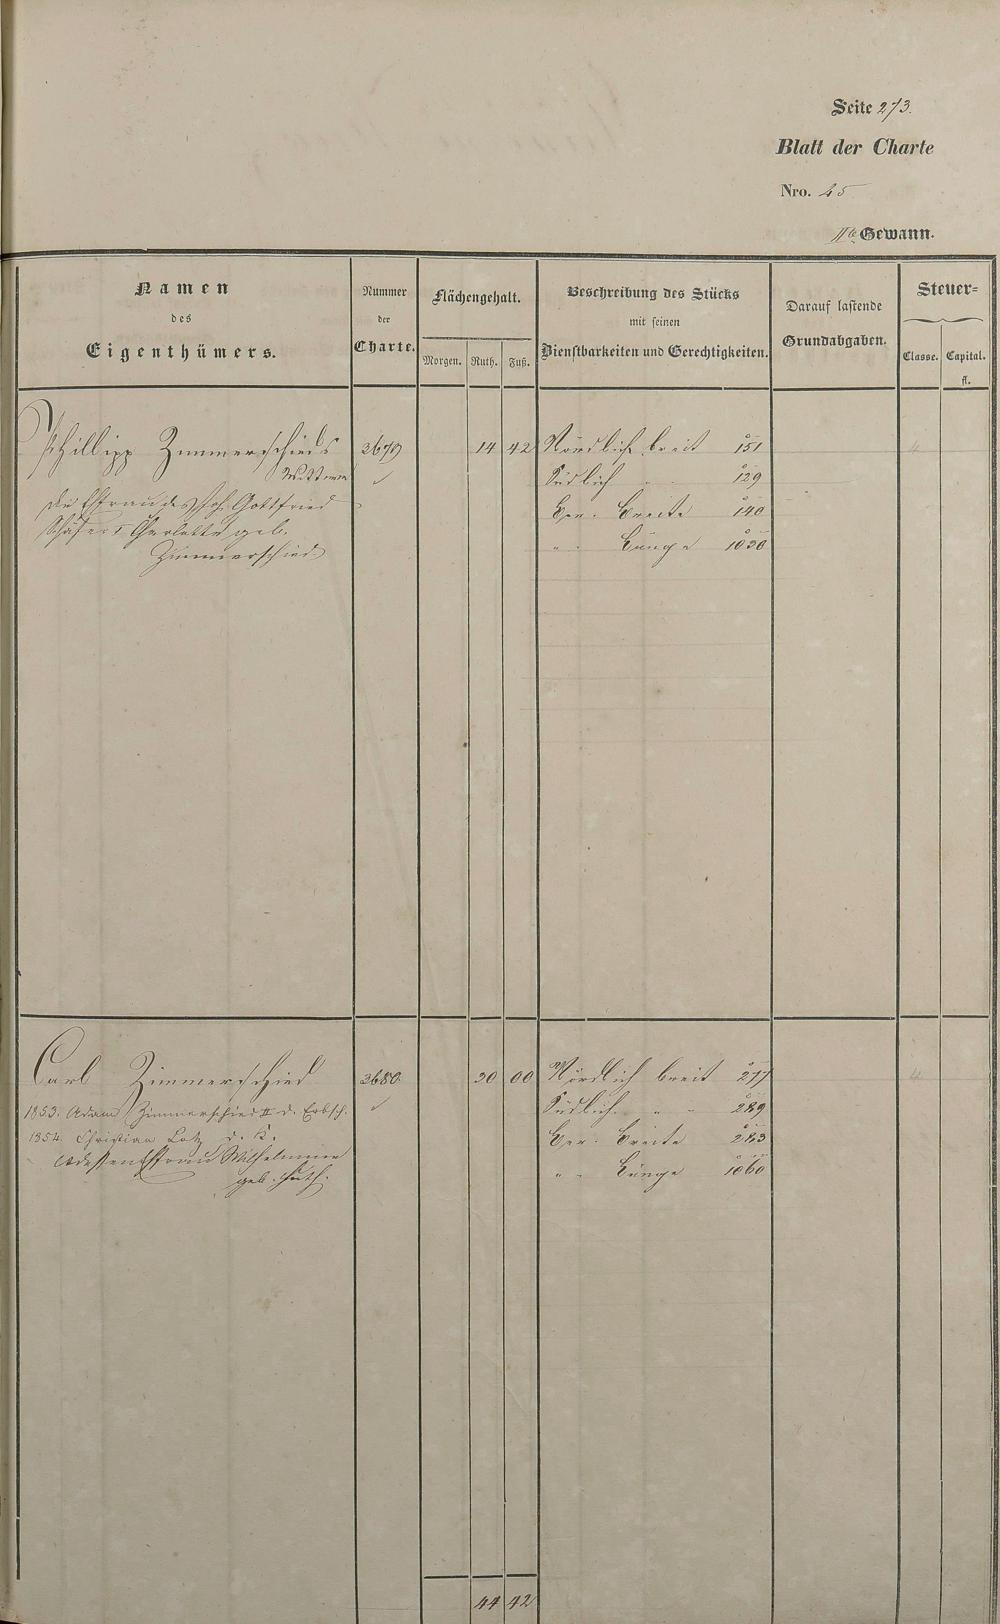 Seite 273.
Blatt der Charte
Nro. 45
IIte Gewann.
Namen
des
Eigenthümers.
Nummer
der
Charte.
Flächengehalt.
Morgen. Ruth. Fuß.
Beschreibung des Stücks
mit seinen
Dienstbarkeiten und Gerechtigkeiten.
Darauf lastende
Grundabgaben.
Steuer=
Classe. Capital.
fl.
Phillipp Zimmerschieds 3679 14 42 Nördlich breit 151 4
Wittwe Südlich " " 129
Die Ehfrau des Joh. Gottfried Ger. Breite 140
Schäfers Charlotte geb. " " Länge 1030
Zimmerschied
Carl Zimmerschied 3680 30 00 Nördlich breit 277 4
1853. Adam Zimmerschied II d. Erbsch. Südlich " " 289
1854. Christian Lotz d. K. Ger. Breite 283
& dessen Ehfrau Wilhelmine " " Länge 1060
geb. Huth.
44 42